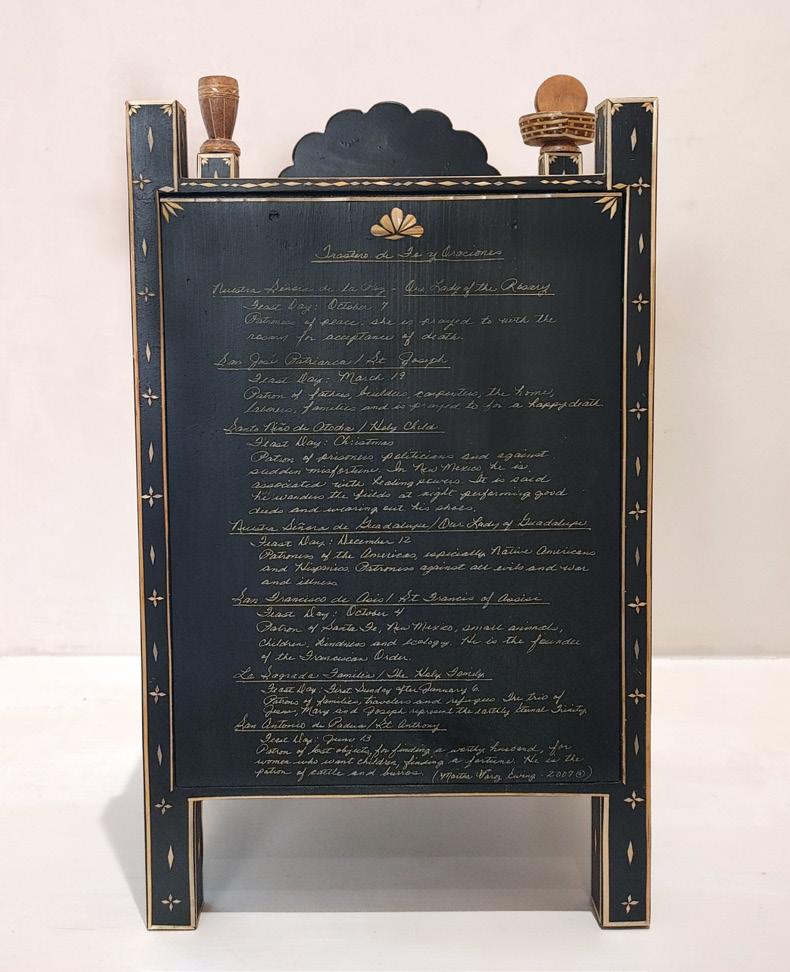 Trastero de Fe y Oraciones
Nuestra Señora de la Paz - Our Lady of the Rosary
Feast Day: October 7
Patroness of peace. She is prayed to with the
rosary for acceptance of death.
San José Patriarca / St. Joseph
Feast Day: March 19
Patron of fathers, builders, carpenters, the home,
laborers, families and is prayed to for a happy death
Santo Niño de Atocha / Holy Child
Feast Day: Christmas
Patron of prisoners, politicians and against
sudden misfortune. In New Mexico, he is
associated with healing powers. It is said
he wanders the fields at night performing good
deeds and wearing out his shoes.
Nuestra Señora de Guadalupe / Our Lady of Guadalupe
Feast Day: December 12
Patroness of the Americas, especially Native Americans
and Hispanics. Patroness against all evils and war
and illness
San Francisco de Asis / St Francis of Assisi
Feast Day: October 4
Patron of Santa Fe, New Mexico, small animals,
children, kindness and ecology. He is the founder
of the Franciscan Order.
La Sagrada Familia / The Holy Family
Feast Day: First Sunday after January 6.
Patrons of families, travelers and refugees. The trio of
Jesus, Mary and Joseph represent the earthly Eternal Trinity.
San Antonio de Padua / St. Anthony
Feast Day: June 13
Patron of lost objects, for finding a worthy husband, for
women who want children, finding a fortune. He is the
patron of cattle and burros. (Martha Varoz Ewing - 2007 ©)